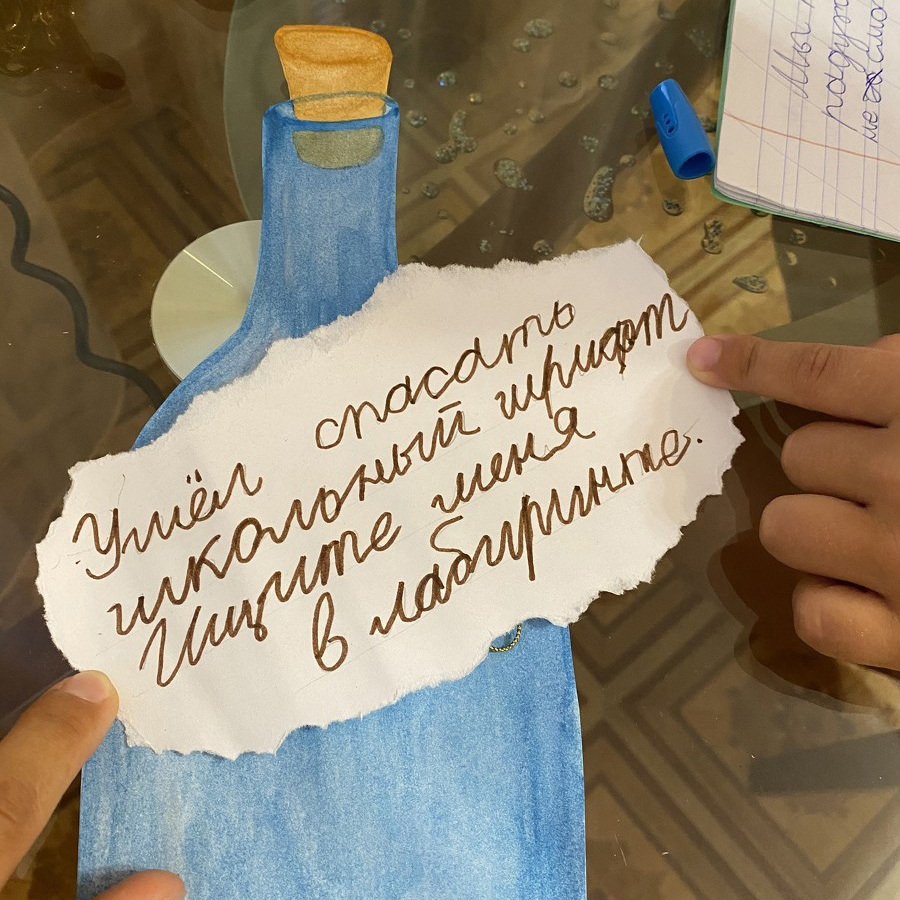 Ушёл спасать
школьный шрифт
Ищите меня
в лабиринте.
Мы